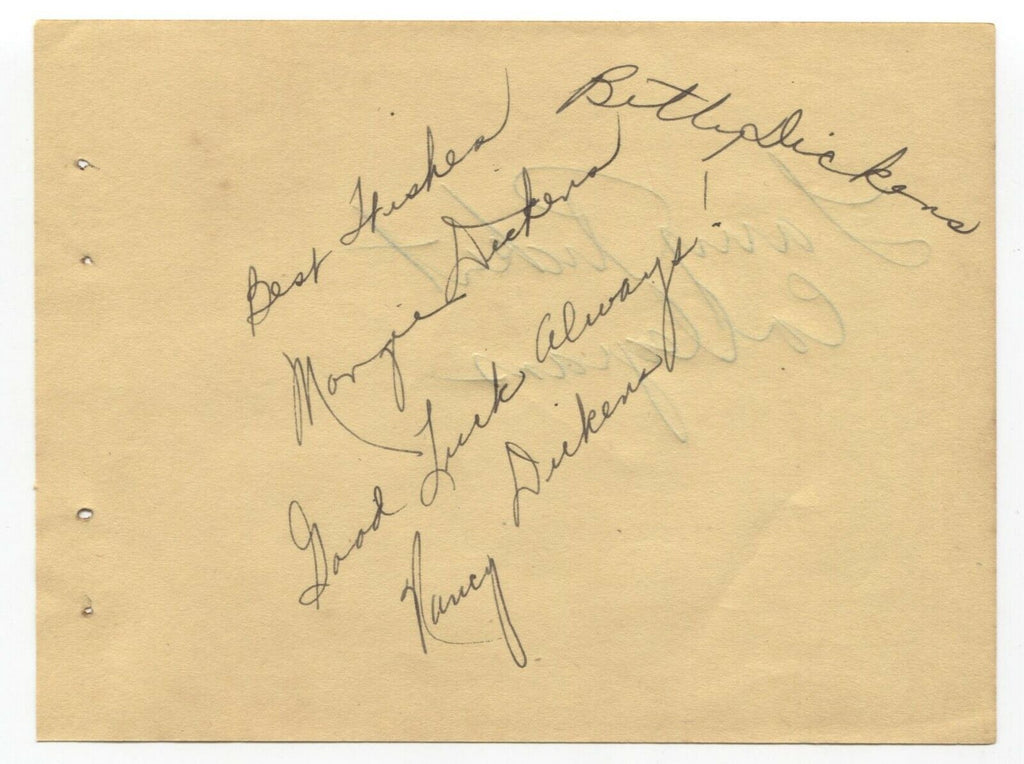 Betty Dickens
Best Wishes
Margie Dickens
Good Luck Always!
Nancy Dickens